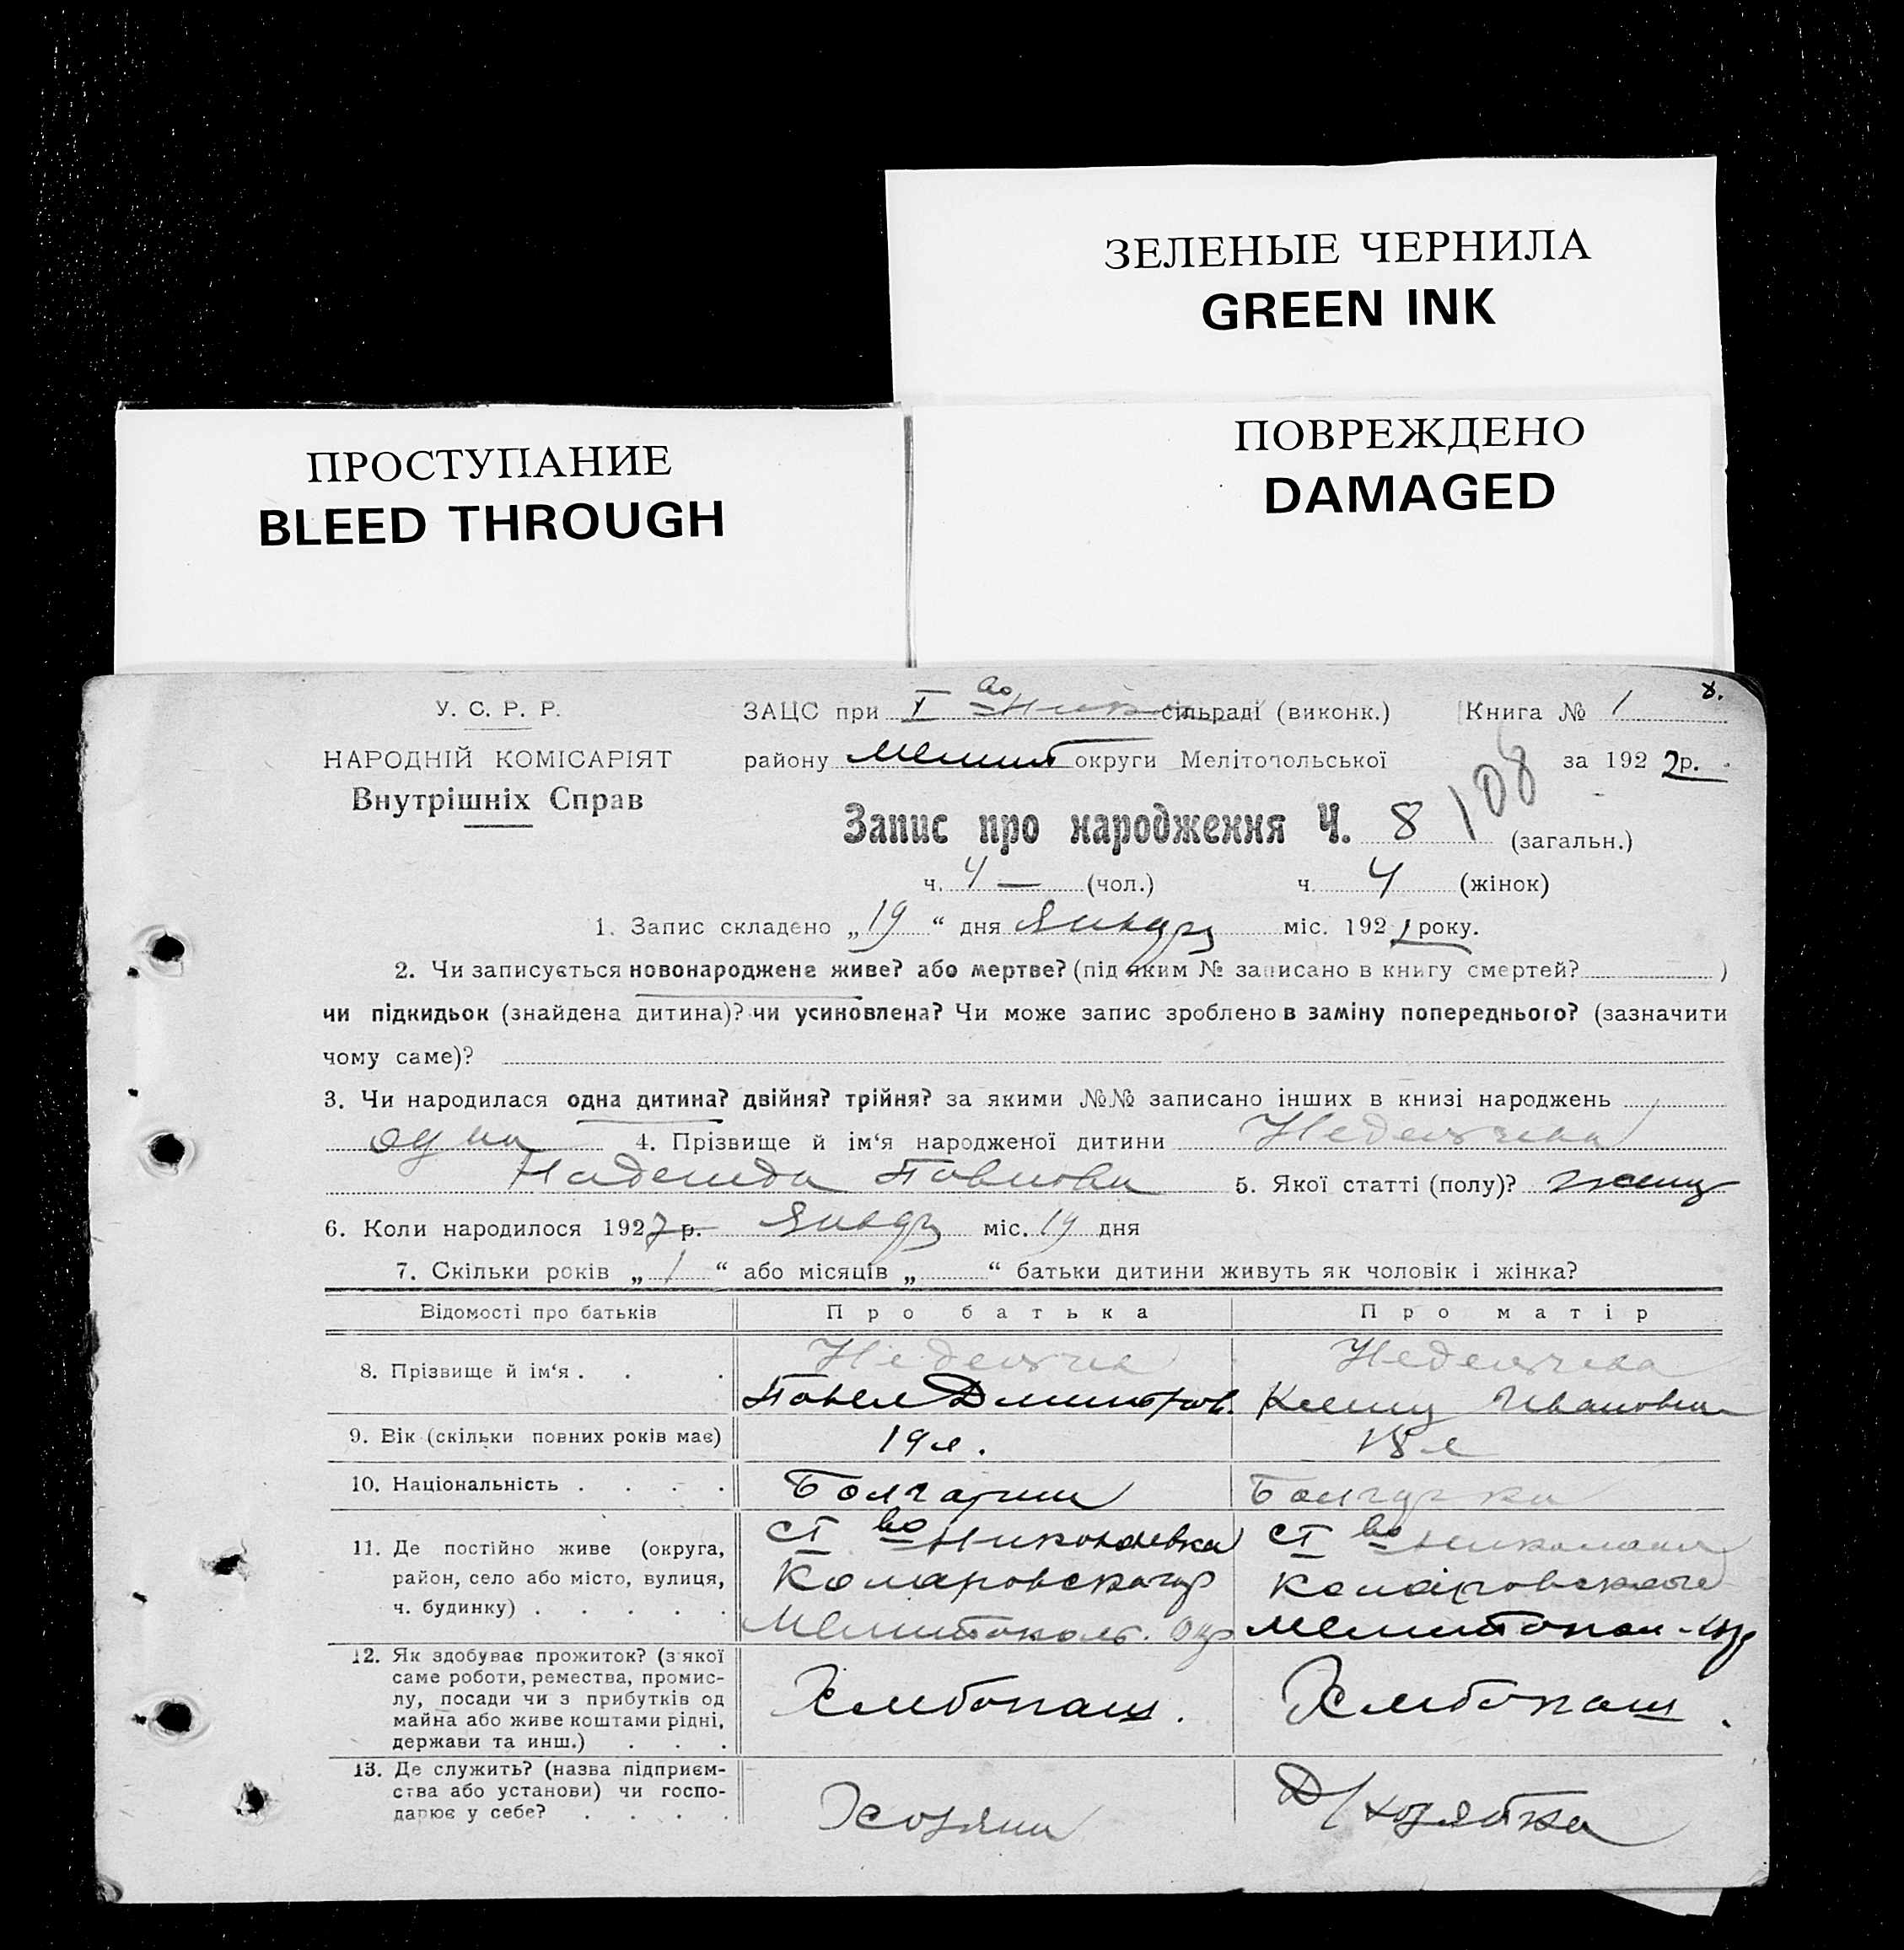 ЗЕЛЕНЫЕ ЧЕРНИЛА
GREEN INK
ПРОСТУПАНИЕ
BLEED THROUGH
ПОВРЕЖДЕНО
DAMAGED
У. С. Р. Р.
НАРОДНІЙ КОМІСАРІЯТ
Внутрішніх Справ
ЗАЦС при I сільраді (виконк.) Книга № 1
району Мелит округи Мелітопольської за 192 р.
Запис про народження Ч. 8 108 (загальн.)
ч. 4 — (чол.) ч. 4 (жінок)
1. Запис складено „19“ дня Январ міс. 192 року.
2. Чи записується новонароджене живе? або мертве? (під яким № записано в книгу смертей? )
чи підкидьок (знайдена дитина)? чи усиновлена? Чи може запис зроблено в заміну попереднього? (зазначити
чому саме)?
3. Чи народилася одна дитина? двійня? трійня? за якими №№ записано інших в книзі народжень
одна 4. Прізвище й ім‘я народженої дитини
Надежда Павлова 5. Якої статті (полу)? женщ
6. Коли народилося 1927 р. Январ міс. 19 дня
7. Скільки років „1“ або місяців „ “ батьки дитини живуть як чоловік і жінка?
Відомості про батьків Про батька Про матір
8. Прізвище й ім‘я . . .
Павел Дмитров. Ксения Ивановна
9. Вік (скільки повних років має) 19 л. 18 л
10. Національність . . . . Болгарин Болгарка
11. Де постійно живе (округа, район, село або місто, вулиця, ч. будинку) . . . . .
с I во Николаевка с I во
Комаровского Комаровского
Мелитополь. Окр Мелитопол. окр
12. Як здобуває прожиток? (з якої саме роботи, ремества, промислу, посади чи з прибутків од майна або живе коштами рідні, держави та инш.) . . .
Хлебопаш. Хлебопаш.
13. Де служить? (назва підприємства або установи) чи господарює у себе? . . . .
Хозяин Д/хозяйка